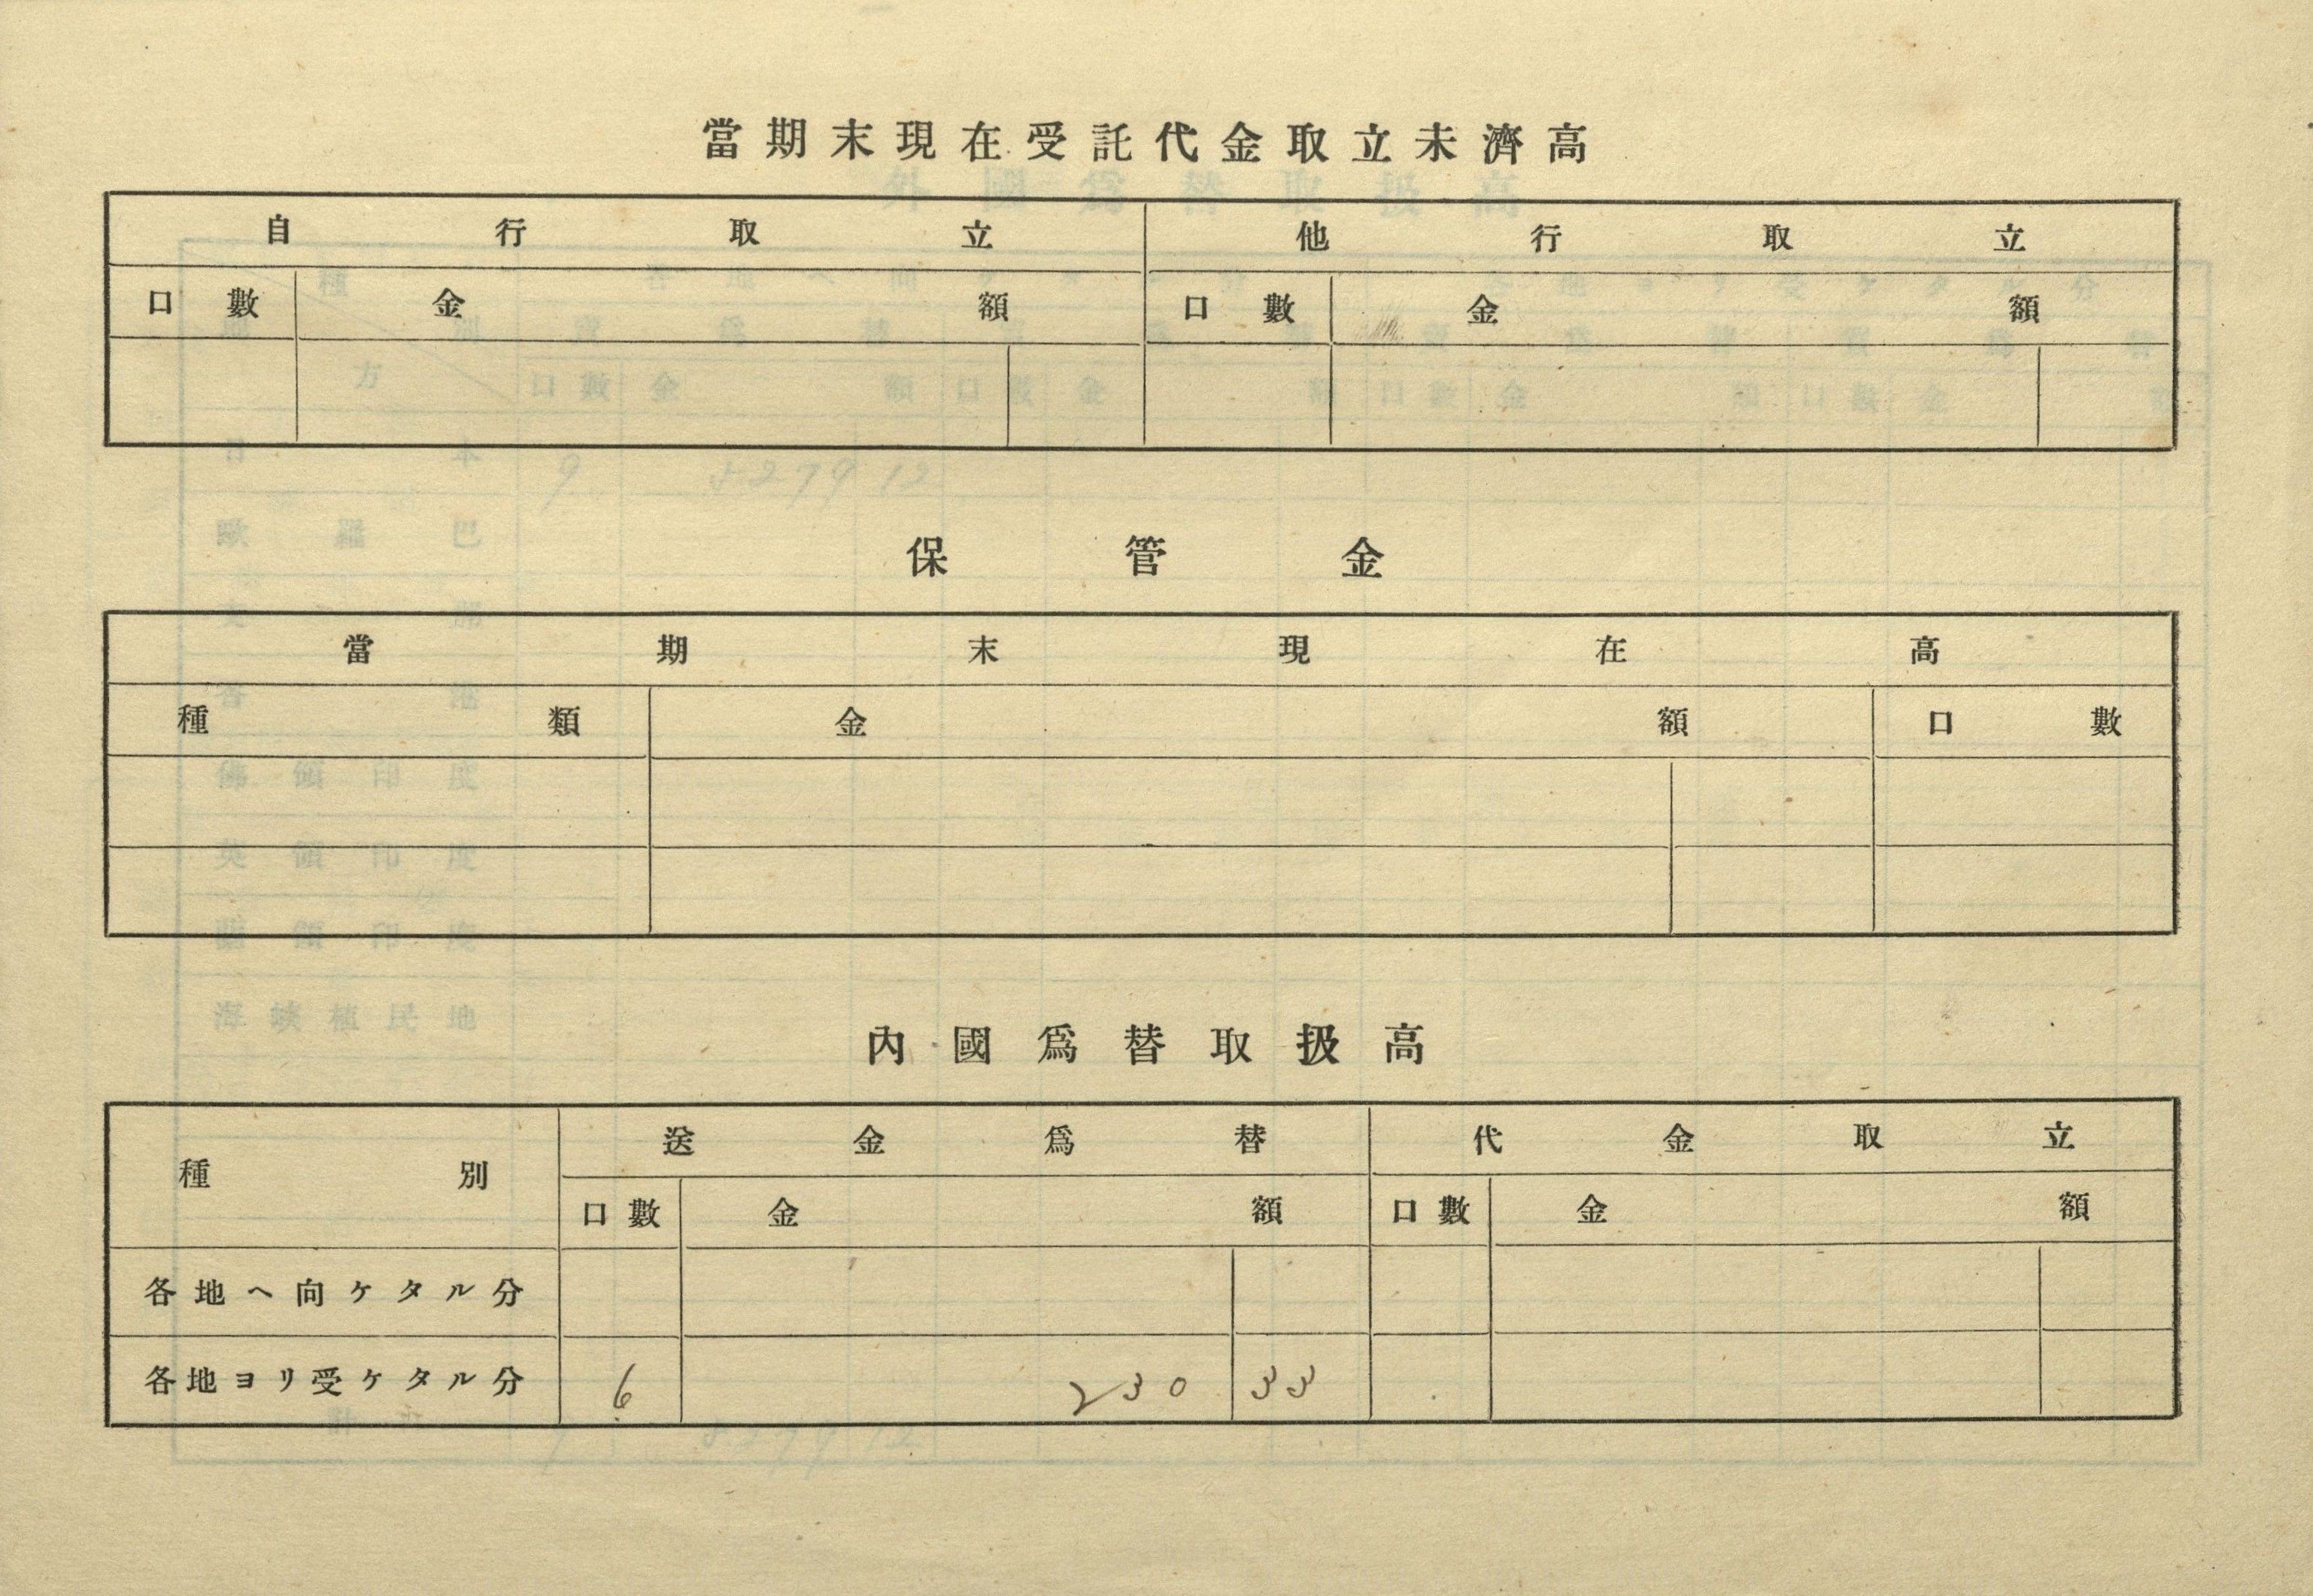 當期末現在受託代金取立未濟高
自行取立 他行取立
口數 金額 口數 金額
保管金
當期末現在高
種類 金額 口數
內國爲替取扱高
種別 送金爲替 代金取立
口數 金額 口數 金額
各地ヘ向ケタル分
各地ヨリ受ケタル分 6 230 33